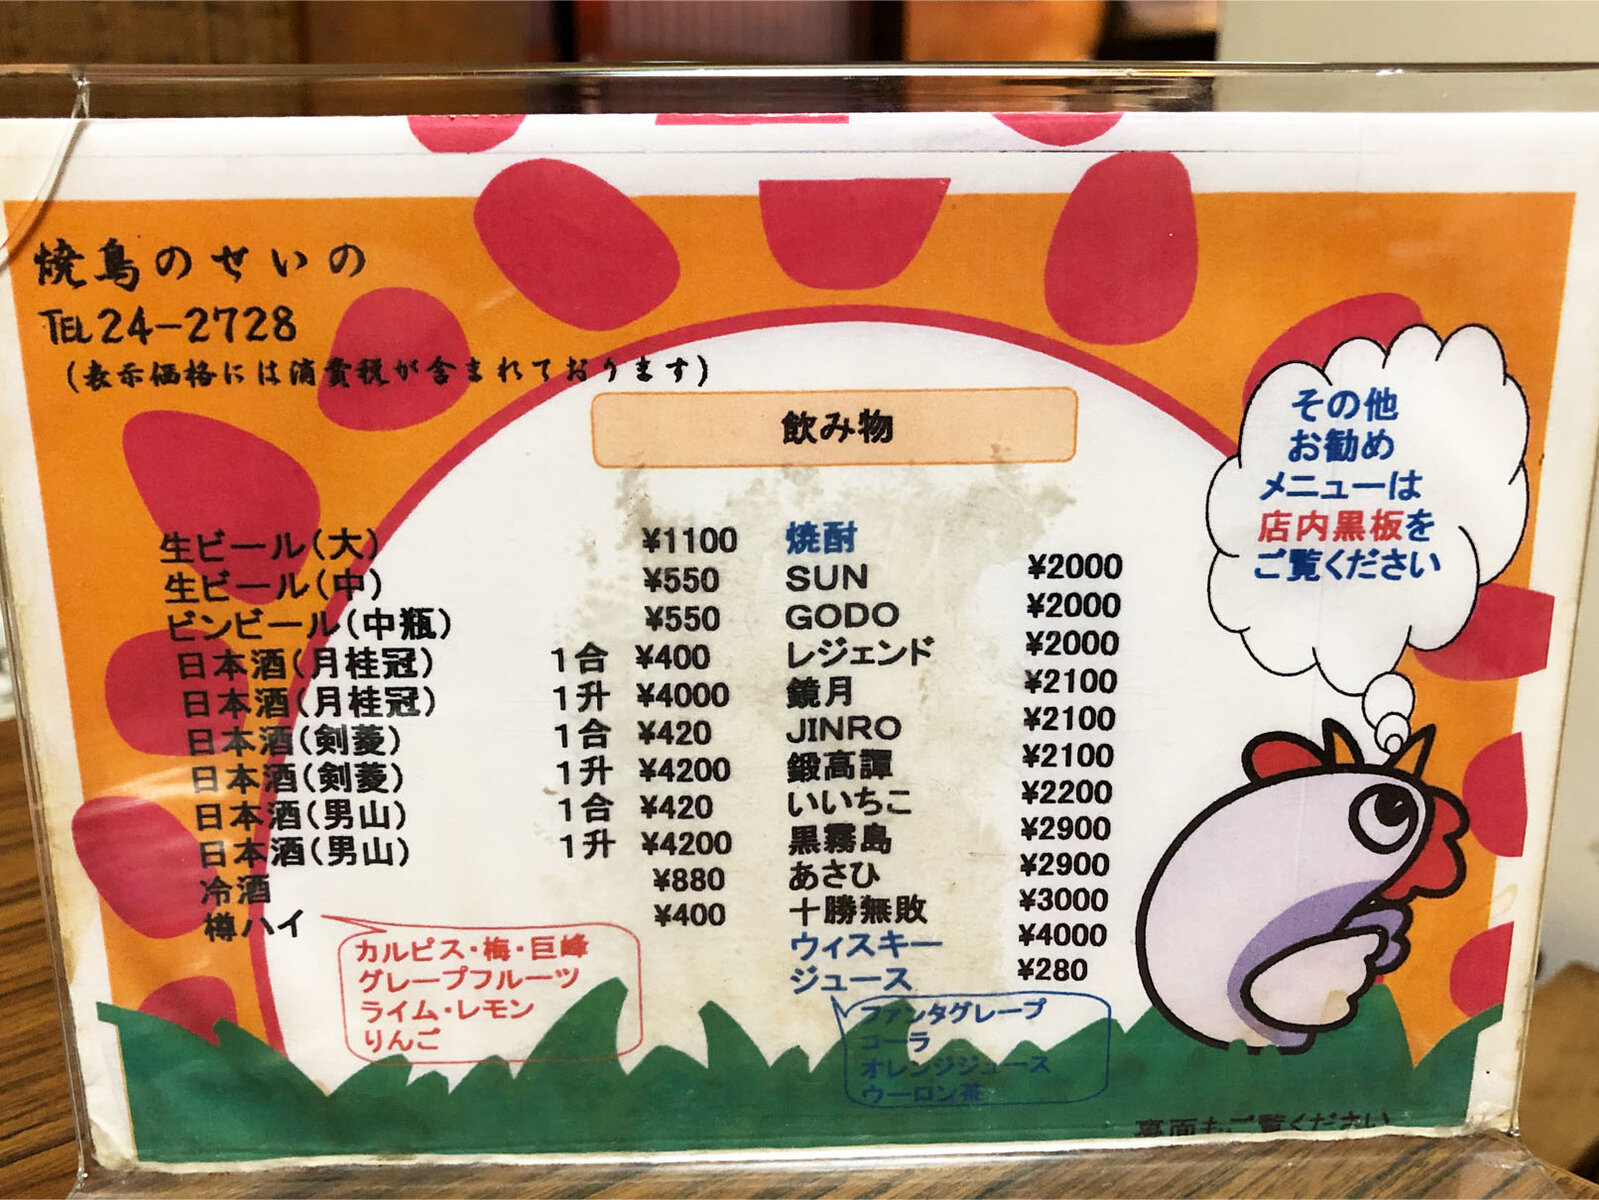 焼鳥のせいの
TEL24-2728
(表示価格には消費税が含まれております)
飲み物
生ビール(大) ¥1100
生ビール(中) ¥550
ビンビール(中瓶) ¥550
日本酒(月桂冠) 1合 ¥400
日本酒(月桂冠) 1升 ¥4000
日本酒(剣菱) 1合 ¥420
日本酒(剣菱) 1升 ¥4200
日本酒(男山) 1合 ¥420
日本酒(男山) 1升 ¥4200
冷酒 ¥880
樽ハイ ¥400
カルピス・梅・巨峰
グレープフルーツ
ライム・レモン
りんご
焼酎
SUN ¥2000
GODO ¥2000
レジェンド ¥2000
鏡月 ¥2100
JINRO ¥2100
鍛高譚 ¥2100
いいちこ ¥2200
黒霧島 ¥2900
あさひ ¥2900
十勝無敗 ¥3000
ウィスキー ¥4000
ジュース ¥280
ファンタグレープ
コーラ
オレンジジュース
ウーロン茶
その他
お勧め
メニューは
店内黒板を
ご覧ください
裏面もご覧ください